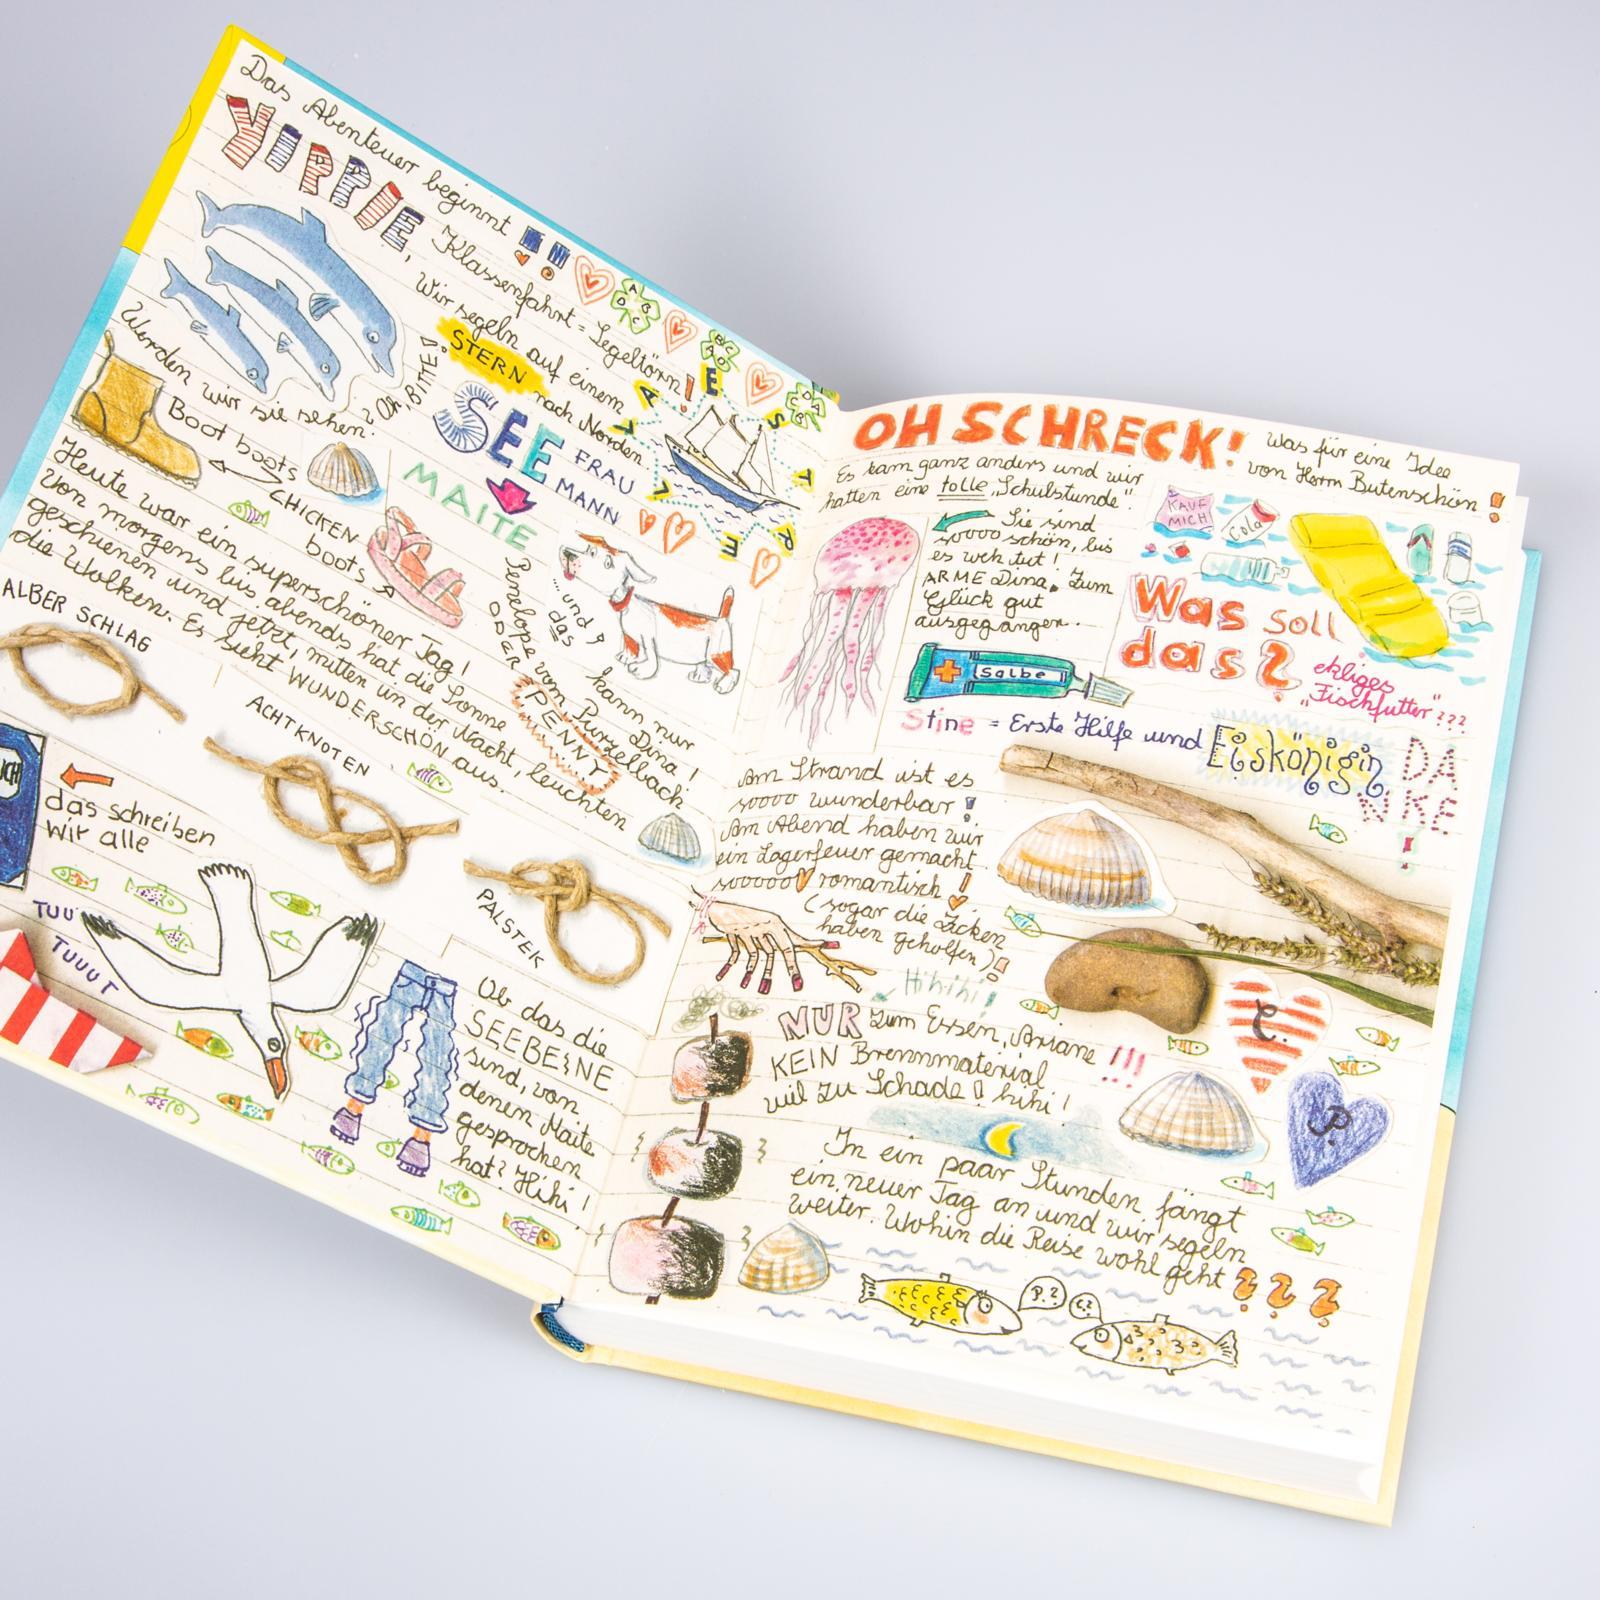 Das Abenteuer beginnt !!
YIPPIE,
Klassenfahrt = Segeltörn!
Wir segeln auf einem
STERN nach Norden
Werden wir sie sehen? Oh, BITTE!
Boot boots
CHICKEN
boots
SEE FRAU
MANN
MAITE
Heute war ein superschöner Tag!
Von morgens bis abends hat die Sonne
geschienen und jetzt, mitten in der Nacht, leuchten
die Wolken. Es sieht WUNDERSCHÖN aus.
... und
das
kann nur Dina!
Penelope vom Purzelbach
ODER
PENNY
ALBER SCHLAG
ACHTKNOTEN
PALSTEK
ICH
das schreiben
wir alle
TUU
TUUUT
Ob das die
SEEBEINE
sind, von
denen Maite
gesprochen
hat? Hihi!
OH SCHRECK!
Was für eine Idee
von Herrn Butenschön!
Es kam ganz anders und wir
hatten eine tolle „Schulstunde“.
Sie sind
soooo schön, bis
es weh tut!
ARME Dina. Zum
Glück gut
ausgegangen.
KAUF
MICH!
Cola
Was soll
das?
ekliges
„Fischfutter“???
Salbe
Stine = Erste Hilfe und Eiskönigin
DA
NKE
!
Am Strand ist es
soooo wunderbar!
Am Abend haben wir
ein Lagerfeuer gemacht.
sooooo romantisch!
(sogar die Zicken
haben geholfen)!
Hihihi!
NUR zum Essen, Ariane!!!
KEIN Brennmaterial
viel zu Schade! hihi!
C.
P.
In ein paar Stunden fängt
ein neuer Tag an und wir segeln
weiter. Wohin die Reise wohl geht???
P.?
C.?